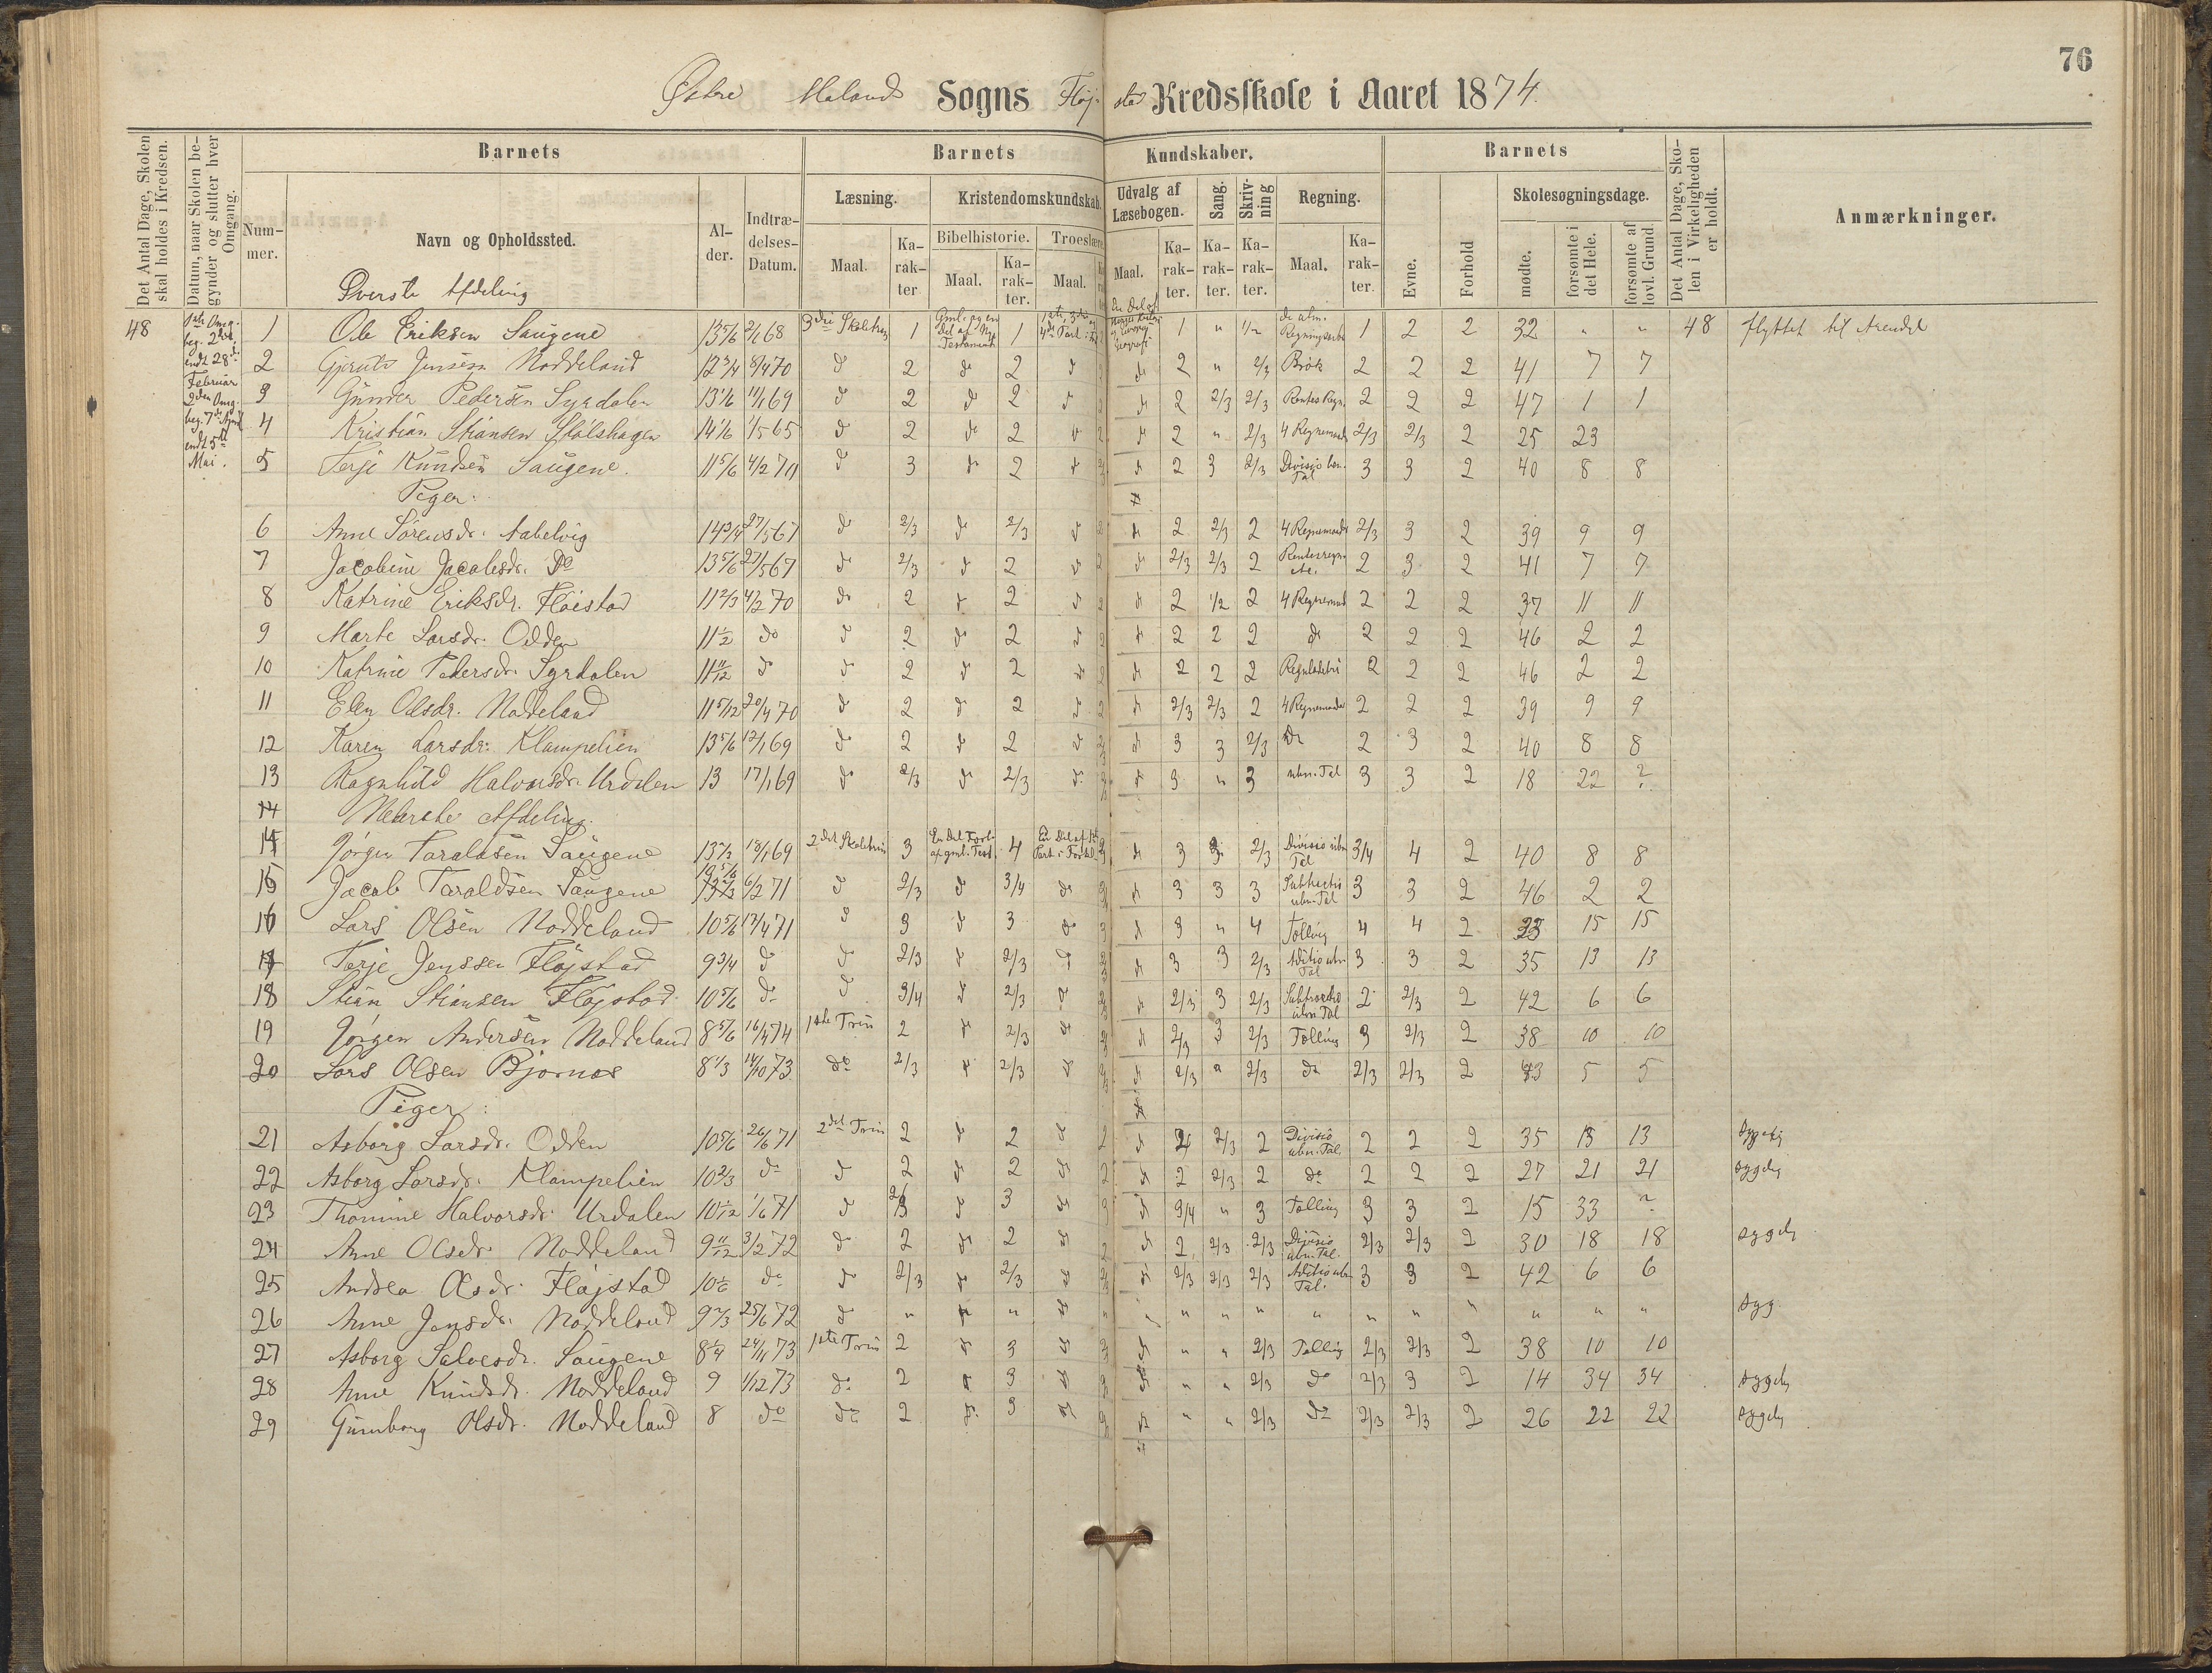 76
Østre Moland Sogns Fløjstad Kredsskole i Aaret 1874.
Det Antal Dage, Skolen skal holdes i Kredsen.
Datum, naar Skolen begynder og slutter hver Omgang.
Barnets
Barnets
Kundskaber.
Barnets
Det Antal Dage, Skolen i Virkeligheden er holdt.
Anmærkninger.
Nummer.
Navn og Opholdssted.
Alder.
Indtrædelses-Datum.
Læsning.
Kristendomskundskab.
Udvalg af Læsebogen.
Sang.
Skrivning
Regning.
Evne.
Forhold
Skolesøgningsdage.
Maal.
Karakter
Bibelhistorie.
Troeslære
Maal.
Karakter.
Maal.
Maal.
Karakter.
Karakter.
Karakter.
Maal.
Karakter.
mødte.
forsømte i det Hele.
forsømte af lovl. Grund.
Øverste Afdeling
48 1ste Omg. beg. 2den endt 28de Februar 2den Omg. beg. 7de April endt 5te Mai.
1 Ole Eriksen Saugene 13 5/6 2/1 68 3die Skoletrin 1 Gml. og en Del af Nyt Testament 1 1 " 1/2 de alm. Regningsarter 1 2 2 32 " " 48 flyttet til Arendal
2 Gjeruld Jensen Noddeland 12 3/4 8/4 70 do 2 do 2 do do 2 " 2/3 Brøk 2 2 2 41 7 7
3 Gunder Pedersen Syrdalen 13 1/6 11/1 69 do 2 do 2 do do 2 2/3 2/3 Rentes Regn. 2 2 2 47 1 1
4 Kristian Stiansen Stølshagen 14 1/6 1/5 65 do 2 do 2 do 2 do 2 " 2/3 4 Regnemaader 2/3 2/3 2 25 23
5 Terje Knudsen Saugene. 11 5/6 4/2 70 do 3 do 2 do do 2 3 2/3 Divisio ben. Tal 3 3 2 40 8 8
Piger.
6 Anne Sørensdr. Aabelvig 14 3/4 27/5 67 do 2/3 do 2/3 do 2 do 2 2/3 2 4 Regnemaader 2/3 3 2 39 9 9
7 Jacobine Jacobsdr. Do 13 5/6 27/5 67 do 2/3 do 2 do 2 do 2/3 2/3 2 Rentesregn. etc. 2 3 2 41 7 7
8 Katrine Eriksdr. Fløistad 11 2/3 4/2 70 do 2 do 2 do 2 do 2 1/2 2 4 Regnemaad 2 2 2 37 11 11
9 Marte Larsdr. Odden 11 1/2 do do 2 do 2 do 2 do 2 2 2 do 2 2 2 46 2 2
10 Katrine Pedersdr. Syrdalen 11 11/12 do do 2 do 2 do 2 do 2 2 2 Reguladetri 2 2 2 46 2 2
11 Elen Olsdr. Noddeland 11 5/12 20/4 70 do 2 do 2 do 2 do 2/3 2/3 2 4 Regnemaader 2 2 2 39 9 9
12 Karen Larsdr. Klampelien 13 5/6 12/1 69 do 2 do 2 do do 3 3 2/3 Do 2 3 2 40 8 8
13 Ragnhild Halvorsdr. Urdalen 13 17/1 69 do 2/3 do 2/3 do do 3 " 3 ubn. Tal 3 3 2 18 22 ?
Nederste Afdeling.
14 Jørgen Taraldsen Saugene 13 1/2 18/1 69 2det Skoletrin 3 En Del Fort. af gml. Test. 4 En Del af 1ste Part i Forkl. 3 do 3 3 2/3 Divisio ubn Tal 3/4 4 2 40 8 8
15 Jacob Taraldsen Saugene 10 5/6 6/2 71 do 2/3 do 3/4 do do 3 3 3 Subtractio ubn. Tal 3 3 2 46 2 2
16 Lars Olsen Noddeland 10 5/6 17/4 71 do 3 do 3 do 3 do 3 " 4 Tælling 4 4 2 33 15 15
17 Terje Jenssen Fløjstad 9 3/4 do do 2/3 do 2/3 do do 3 3 2/3 Aditio ubn Tal 3 3 2 35 13 13
18 Stian Stiansen Fløjstad 10 5/6 do do 3/4 do 2/3 do do 2/3 3 2/3 Subtractio ubn Tal 2 2/3 2 42 6 6
19 Jørgen Andersen Noddeland 8 5/6 16/4 74 1ste Trin 2 do 2/3 do do 2/3 3 2/3 Tælling 3 2/3 2 38 10 10
20 Lars Olsen Bjørnes 8 1/3 14/10 73 do 2/3 do 2/3 do do 2/3 " 2/3 do 2/3 2/3 2 43 5 5
Piger:
21 Asborg Larsdr. Odden 10 5/6 26/6 71 2det Trin 2 do 2 do 2 do 2 2/3 2 Divisio ubn. Tal. 2 2 2 35 13 13 sygelig
22 Asborg Larsdr. Klampelien 10 2/3 do do 2 do 2 do 2 do 2 2/3 2 do 2 2 2 27 21 21 sygelig
23 Thomine Halvorsdr. Urdalen 10 1/12 1/6 71 do 2/3 do 3 do 3 do 3/4 " 3 Tælling 3 3 2 15 33 ?
24 Anne Olsdr. Noddeland 9 11/12 3/2 72 do 2 do 2 do 2 do 2 2/3 2/3 Divisio ubn. Tal. 2/3 2/3 2 30 18 18 sygelig
25 Andrea Olsdr. Fløjstad 10 1/6 do do 2/3 do 2/3 do 2/3 do 2/3 2/3 2/3 Aditio ubn Tal. 3 3 2 42 6 6
26 Anne Jensdr. Noddeland 9 2/3 25/6 72 do " do " do " " " " " " " " " " " syg.
27 Asborg Salvesdr. Saugene 8 1/4 24/11 73 1ste Trin 2 do 3 do do " " 2/3 Tælling 2/3 2/3 2 38 10 10
28 Anne Knudsdr. Noddeland 9 1/12 73 do 2 do 3 do do " " 2/3 do 2/3 3 2 14 34 34 sygelig
29 Gunborg Olsdr. Noddeland 8 do do 2 do 3 do do " " 2/3 do 2/3 2/3 2 26 22 22 sygelig